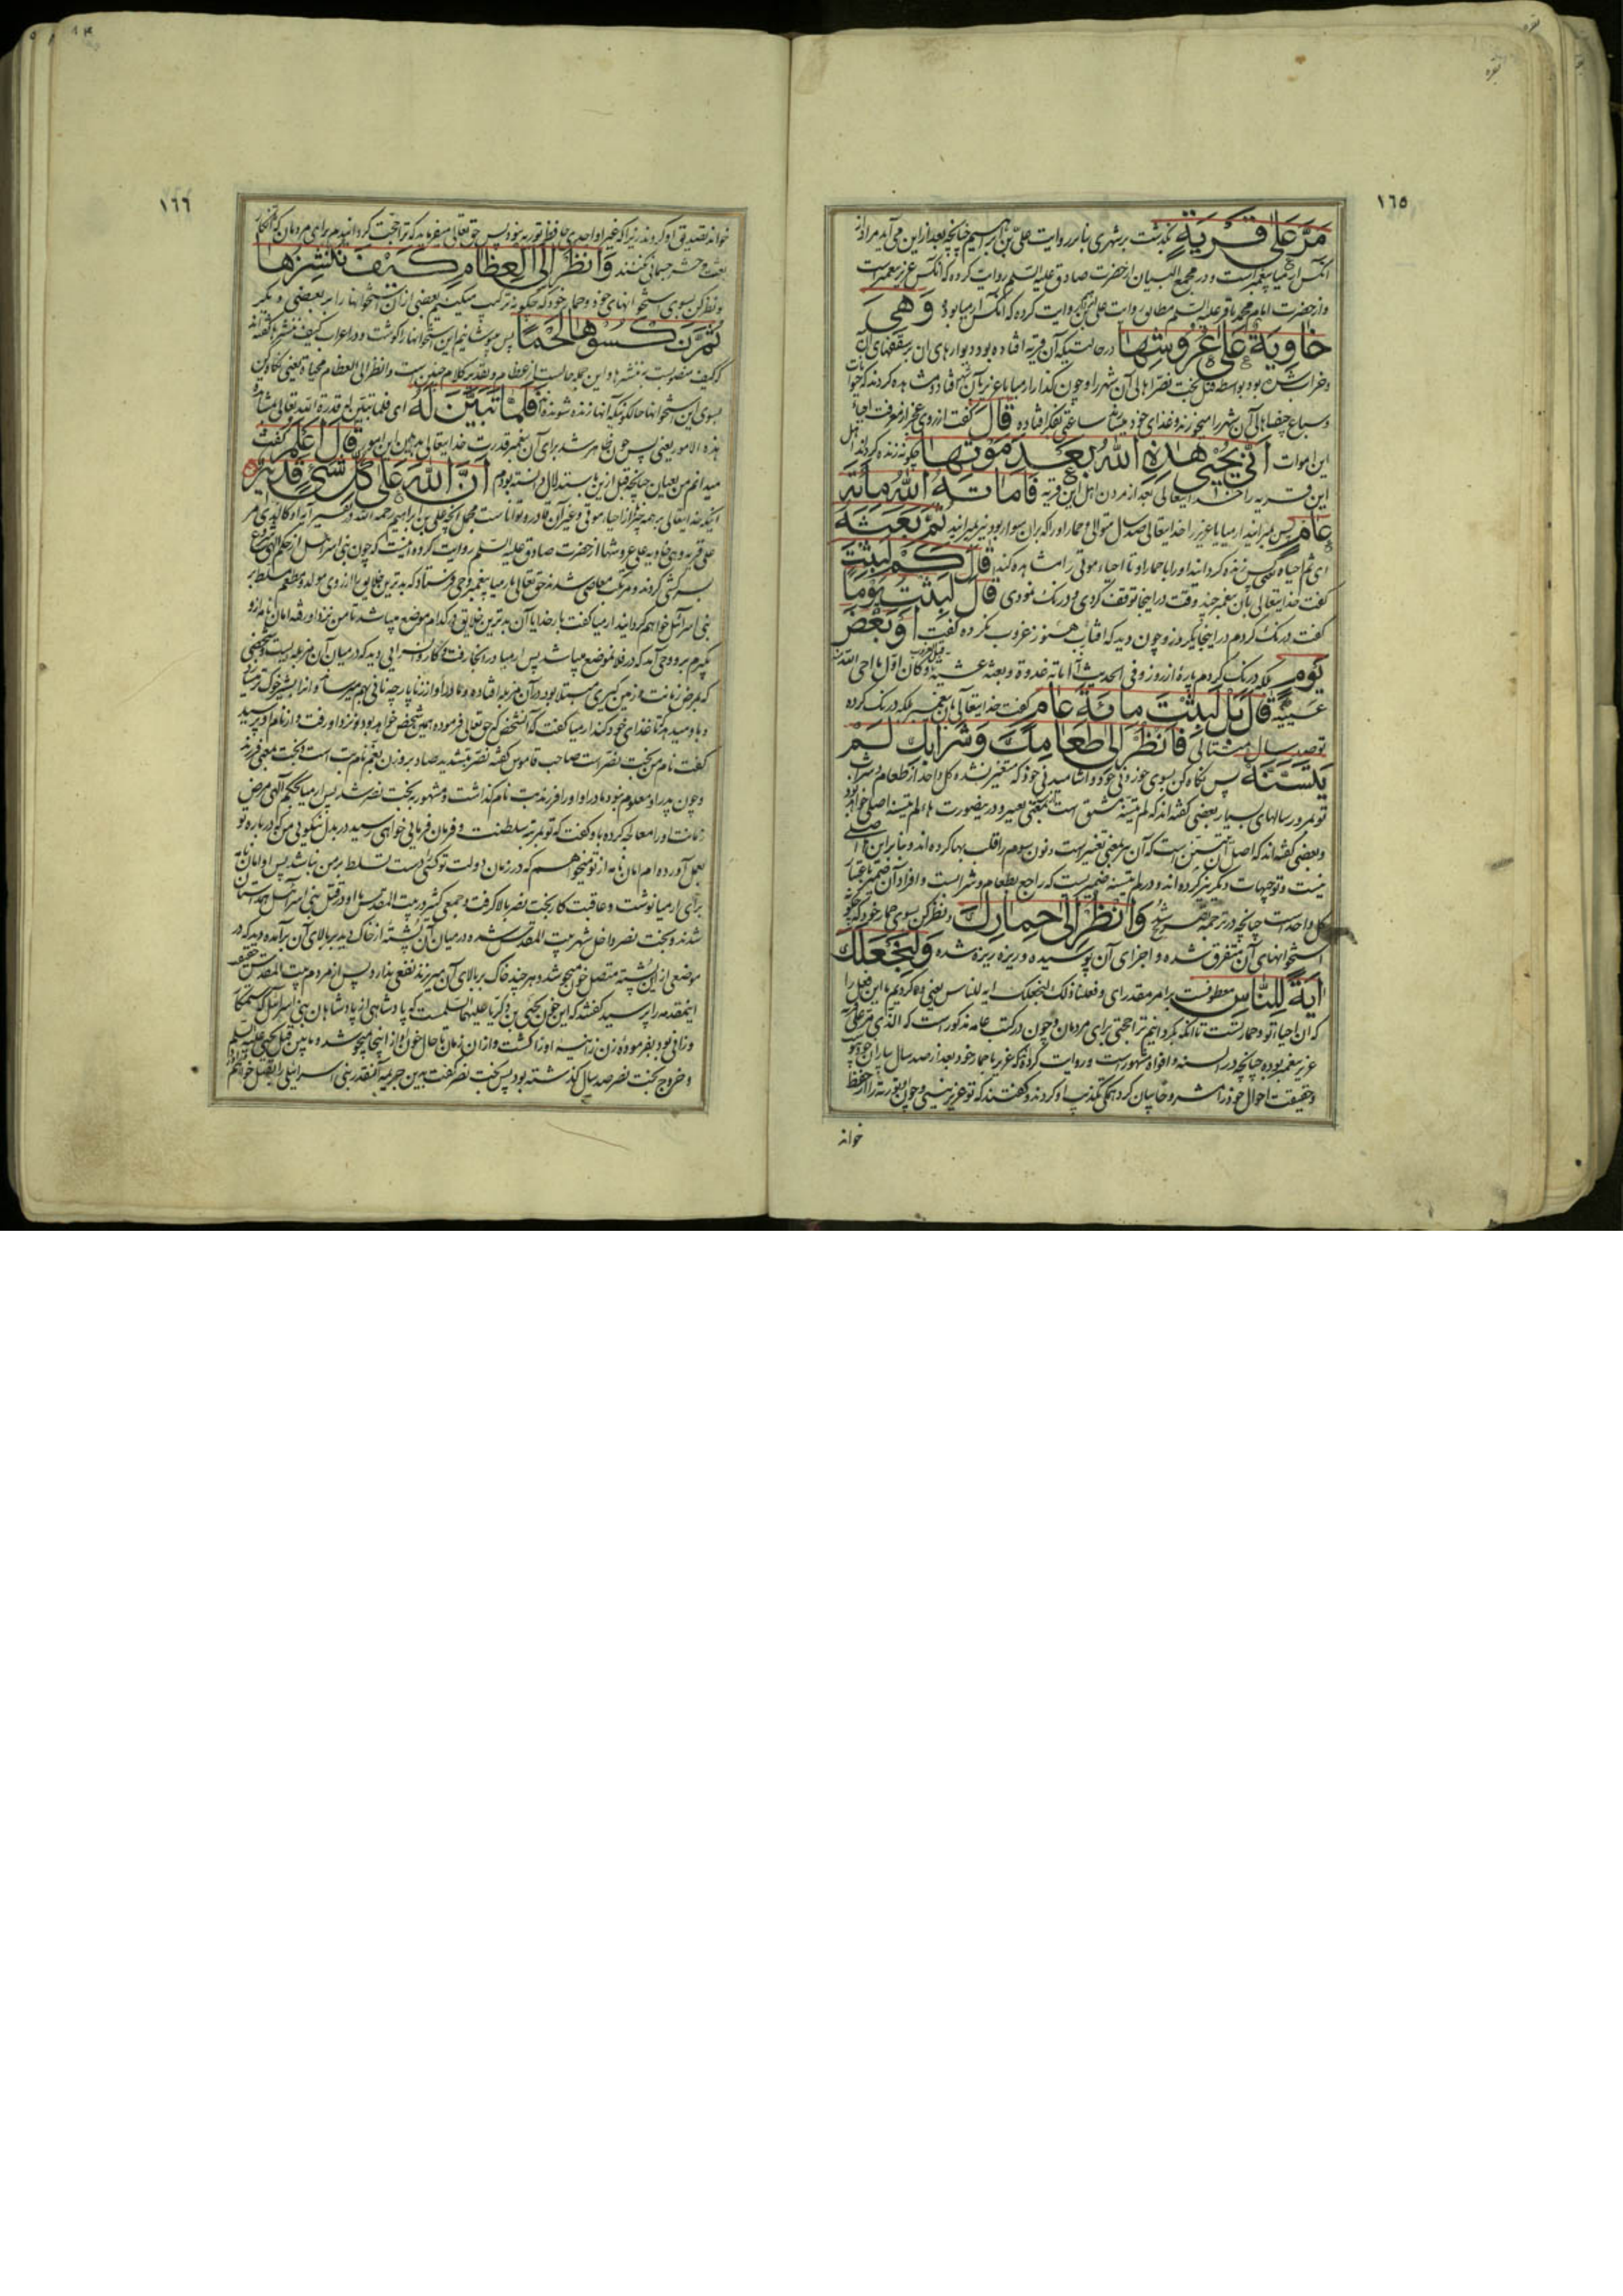 ١٦٥
مَرَّ عَلَى قَرْيَةٍ بگذشت بر شهری بنا بر روایت علی بن ابراهیم چنانچه بعد از این می آید مراد از
آنکس ارمیا پیغمبر است و در مجمع البیان از حضرت صادق علیه السلم روایت کرده که آنکس عزیر پیغمبر است
و از حضرت امام محمد باقر علیه السلم مطابق روایت علی بن ابراهیم روایت کرده که آنکس ارمیا بود وَهِيَ
خَاوِيَةٌ عَلَى عُرُوشِهَا در حالتیکه آن قریه افتاده بود دیوارهای آن بر سقفهای آن
و خراب شده بود بواسطه قتل بخت نصر اهالی آن شهر را و چون گذار ارمیا یا عزیر بآن شهر افتاد و مشاهده کردند که حیوانات
و سباع جیفهای آن شهر را میخورند و غذای خود میسازند ساعتی بفکر افتاده قَالَ گفت از روی عجز از معرفت احیاء
این اموات أَنَّى يُحْيِي هَذِهِ اللَّهُ بَعْدَ مَوْتِهَا چگونه زنده گرداند اهل
این قریه را خدایتعالی بعد از مردن اهل این قریه فَأَمَاتَهُ اللَّهُ مِائَةَ
عَامٍ پس بمیرانید ارمیا یا عزیر را خدایتعالی صد سال متوالی و حمار او را که بران سوار بود نیز بمیرانید ثُمَّ بَعَثَهُ
ای ثم احیاه یعنی پس زنده گردانید او را با حمار او تا احیاء موتی را مشاهده کند قَالَ كَمْ لَبِثْتَ
گفت خدایتعالی بآن پیغمبر چند وقت در اینجا توقف کردی و درنک نمودی قَالَ لَبِثْتُ يَوْمًا
گفت درنک کردم در اینجا یکروز و چون دید که افتاب هنوز غروب نکرده گفت أَوْ بَعْضَ
يَوْمٍ بلکه درنک کردم پارهٔ از روز و فی الحدیث اماته غدوة و بعثه عشیة قبل الغروب و کان اول ما احی الله منه
عینیه قَالَ بَلْ لَبِثْتَ مِائَةَ عَامٍ گفت خدایتعالی بآن پیغمبر بلکه درنک کرده
تو صد سال متتالی فَانْظُرْ إِلَى طَعَامِكَ وَشَرَابِكَ لَمْ
يَتَسَنَّهْ پس نگاه کن بسوی خوردنی خود و اشامیدنی خود که متغیر نشده کل واحد از طعام و شراب
تو بمرور سالهای بسیار بعضی گفته اند که لم یتسنه مشتق است بمعنی تغییر و درینصورت هاء لم یتسنه اصلی خواهد بود
و بعضی گفته اند که اصل آن یتسنن است که آن نیز بمعنی تغییر است و نون سوم را قلب بها کرده اند و بنا براین ها اصلی
نیست و توجیهات دیگر نیز کرده اند و در لم یتسنه ضمیریست که راجع بطعام و شراب است و افراد آن ضمیر باعتبار
کل واحد است چنانچه در ترجمه شد وَانْظُرْ إِلَى حِمَارِكَ و نظر کن بسوی حمار خود که چگونه
استخوانهای آن متفرق شده و اجزای آن پوسیده و ریزه ریزه شده وَلِنَجْعَلَكَ
آيَةً لِلنَّاسِ معطوفست بر امر مقدر ای و فعلنا ذلک لنجعلک ایه للناس یعنی و ما کردیم با این فعل را
که آن احیاء تو و حمار تست تا آنکه بگردانیم ترا حجتی برای مردمان و چون در کتب عامه مذکور است که الذی مر علی قریه
عزیر پیغمبر بوده چنانچه در السنه و افواه مشهور است و روایت کرده که عزیر با حمار خود بعد از صد سال بیاران خود
و حقیقت احوال خود را مشروحا بیان کرد همگی تکذیب او کردند و گفتند که تو عزیر نیستی و چون توریة را از حفظ
خواند
١٦٦
خواند تصدیق او کردند زیرا که غیر او احدی حافظ توریه نبود پس حق تعالی میفرماید که ترا حجت گردانیدیم برای مردمان که انکار
بعث و حشر جسمانی کنند وَانْظُرْ إِلَى الْعِظَامِ كَيْفَ نُنْشِزُهَا
و نظر کن بسوی استخوانهای خود و حمار خود که چگونه ترکیب میکنیم بعضی از آن استخوانها را به بعضی دیگر
ثُمَّ نَكْسُوهَا لَحْمًا پس بپوشانیم این استخوانها را گوشت و در اعراب کیف ننشزها گفته اند
که کیف منصوبست بر ننشزها و این جمله حالست از عظام و تقدیر کلام چنین است وانظر الی العظام محیاة یعنی نگاه کن
بسوی این استخوانها حالکونیکه آنها زنده شونده اند فَلَمَّا تَبَيَّنَ لَهُ ای فلما تبین له قدرة الله تعالی بمشاهدة
هذه الامور یعنی پس چون ظاهر شد برای آن پیغمبر قدرت خدایتعالی بدیدن این امور قَالَ أَعْلَمُ گفت
میدانم من بعیان چنانچه قبل ازین باستدلال دانسته بودم أَنَّ اللَّهَ عَلَى كُلِّ شَيْءٍ قَدِيرٌ
اینکه خدایتعالی بر همه چیز از احیاء موتی و غیر آن قادر و توانا است مجمل آنچه علی بن ابراهیم رحمه الله در تفسیر آیه او کالذی مر
علی قریه و هی خاویه علی عروشها از حضرت صادق علیه السلم روایت کرده اینست که چون بنی اسرائیل از حکم الهی
سرکشی کردند و مرتکب معاصی شدند حق تعالی بارمیا پیغمبر وحی فرستاد که بدترین خلایق را از روی مولد و مطعم مسلط بر
بنی اسرائیل خواهم گردانید ارمیا گفت بار خدایا آن بدترین خلایق در کدام موضع میباشد تا من نزد او رفته امان نامه از او
بگیرم برو وحی آمد که در فلان موضع میباشد پس ارمیا در آنجا رفت و کاروانسرایی دید که در میان آن مزبله ایست و شخصی
که بمرض زمانت و زمین گیری مبتلا بود در آن مزبله افتاده و مادر او از زنا پارچه نانی بهم میرساند و آنرا بشیر خوک ترمیسازد
و باو میدهد تا غذای خود کند ارمیا گفت که آنشخص که حق تعالی فرموده همین شخص خواهد بود نزد او رفت و از نام او پرسید
گفت نام من بخت نصر است صاحب قاموس گفته نصر بتشدید صاد بر وزن بقم نام بت است و بخت بمعنی فرزند
و چون پدر او معلوم نبود مادر او او را فرزند بت نام گذاشت و مشهور به بخت نصر شد پس ارمیا بحکم الهی مرض
زمانت او را معالجه کرده باو گفت که تو بمرتبه سلطنت و فرمان فرمایی خواهی رسید در بدل نیکویی من که در باره تو
بعمل آورده ام امان نامه از تو میخواهم که در زمان دولت تو کسی دست تسلط بر من نباشد پس او امان نامه
برای ارمیا نوشت و عاقبت کار بخت نصر بالا گرفت و جمعی کثیر در بیت المقدس با او در قتل بنی اسرائیل همداستان
شدند و بخت نصر داخل شهر بیت المقدس شده در میان آن پشتهٔ از خاک دید بر بالای آن برآمده دید که در
موضعی از این پشته متصل خون میجوشد و هر چند خاک بر بالای آن میریزند نفعی ندارد پس از مردم بیت المقدس حقیقت
اینمقدمه را پرسید گفتند که این خون یحیی بن زکریا علیهما السلمست که پادشاهی از پادشاهان بنی اسرائیل که ستمکار
و زانی بود بفرمودهٔ زن زانیه او را کشت و از آن زمان تا حال خون او از اینجا میجوشد و مابین قتل یحیی علیه السلم
و خروج بخت نصر صد سال گذشته بود پس بخت نصر گفت بهین جریمه آنقدر بنی اسرائیل را بقتل خواهم